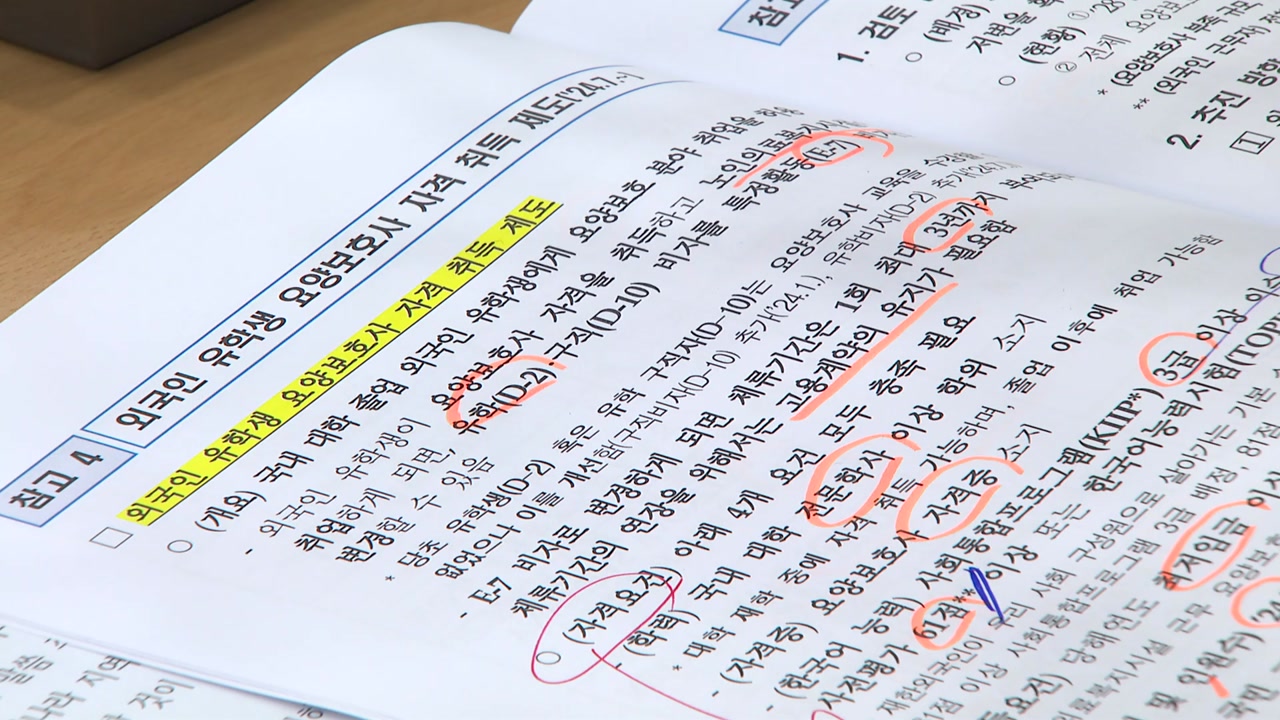 참고 4
외국인 유학생 요양보호사 자격 취득 제도('24.7.~)
□ 외국인 유학생 요양보호사 자격 취득 제도
○ (개요) 국내 대학 졸업 외국인 유학생에게 요양보호 분야 취업을 허용
- 외국인 유학생이 요양보호사 자격을 취득하고 노인의료복지시설
취업하게 되면, 유학(D-2)·구직(D-10) 비자를 특정활동(E-7)
변경할 수 있음
* 당초 유학생(D-2) 혹은 유학 구직자(D-10)는 요양보호사 교육을 수강할
없었으나 이를 개선함(구직비자(D-10) 추가('24.1.), 유학비자(D-2) 추가('24.7.)
- E-7 비자로 변경하게 되면 체류기간은 1회 최대 3년까지 부여
체류기간의 연장을 위해서는 고용계약의 유지가 필요함
○ (자격요건) 아래 4개 요건 모두 충족 필요
- (학력) 국내 대학 전문학사 이상 학위 소지
* 대학 재학 중에 자격 취득 가능하며, 졸업 이후에 취업 가능함
- (자격증) 요양보호사 자격증 소지
- (한국어 능력) 사회통합프로그램(KIIP*) 3급 이상
사전평가 61점** 이상 또는 한국어능력시험(TOPI
재한외국인이 우리 사회 구성원으로 살아가는 기본
이상 사회통합프로그램 3급 배정, 81점
요건) 당해연도 최저임금 이상
근무 요양보호
및 인원수)
참고
1. 검토
○ (배경)
저변을
○ (현황) ①
② 전체 요양보
* (요양보호사 부족 규모
** (외국인 근무자
2. 추진 방향
1
나라 지역
것이